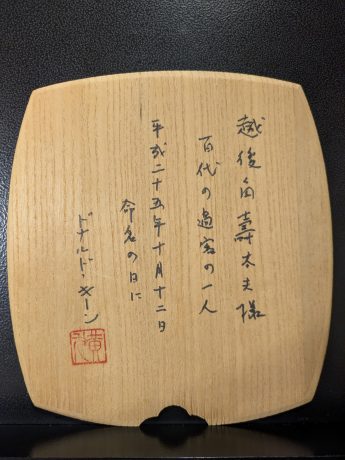 越後角壽太夫様
百代の過客の一人
平成二十五年十月十二日
命名の日に
ドナルド・キーン
黄犬